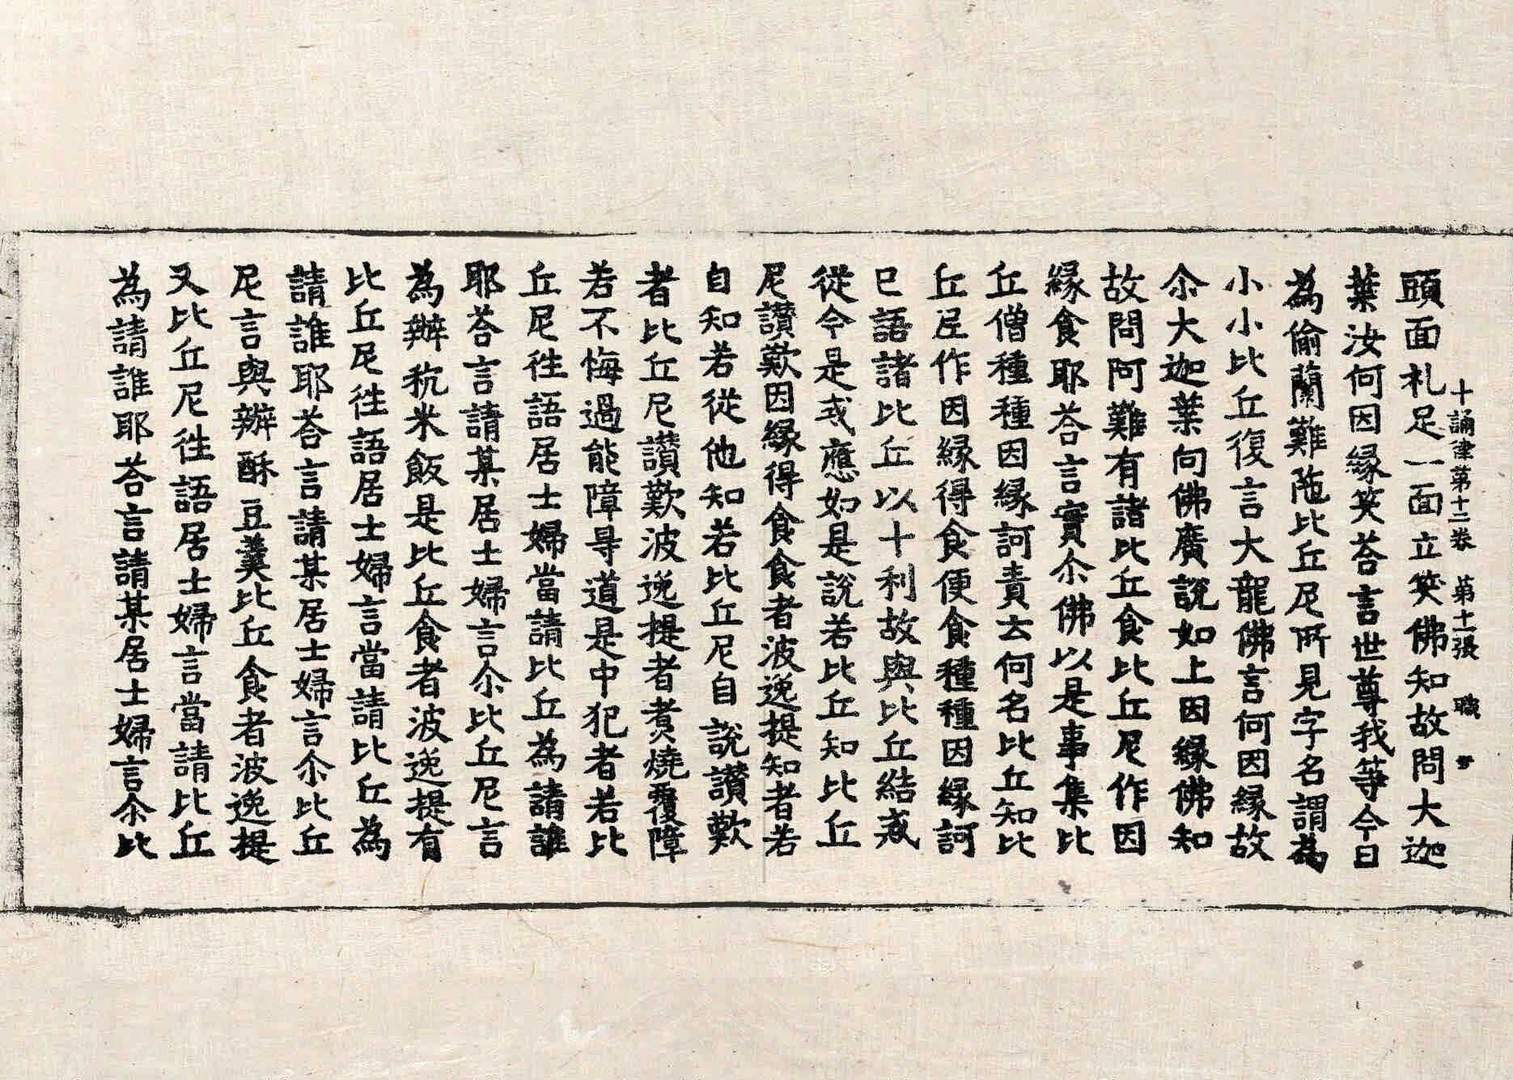 十誦律第十二卷　第十一張　職
頭面札足一面立笑佛知故問大迦
葉汝何因緣笑荅言世尊我等今日
為偷蘭難陁比丘尼所見字名謂為
小小比丘復言大龍佛言何因緣故
尒大迦葉向佛廣說如上因緣佛知
故問阿難有諸比丘食比丘尼作因
緣食耶荅言實尒佛以是事集比
丘僧種種因緣訶責云何名比丘知比
丘尼作因緣得食便食種種因緣訶
已語諸比丘以十利故與比丘結戒
從今是戒應如是說若比丘知比丘
尼讃歎因緣得食食者波逸提知者若
自知若從他知若比丘尼自說讃歎
者比丘尼讃歎波逸提者煑燒覆障
若不悔過能障㝵道是中犯者若比
丘尼徃語居士婦當請比丘為請誰
耶荅言請某居士婦言尒比丘尼言
為辦秔米飯是比丘食者波逸提有
比丘尼徃語居士婦言當請比丘為
請誰耶荅言請某居士婦言尒比丘
尼言與辦酥豆羹比丘食者波逸提
又比丘尼徃語居士婦言當請比丘
為請誰耶荅言請某居士婦言尒比